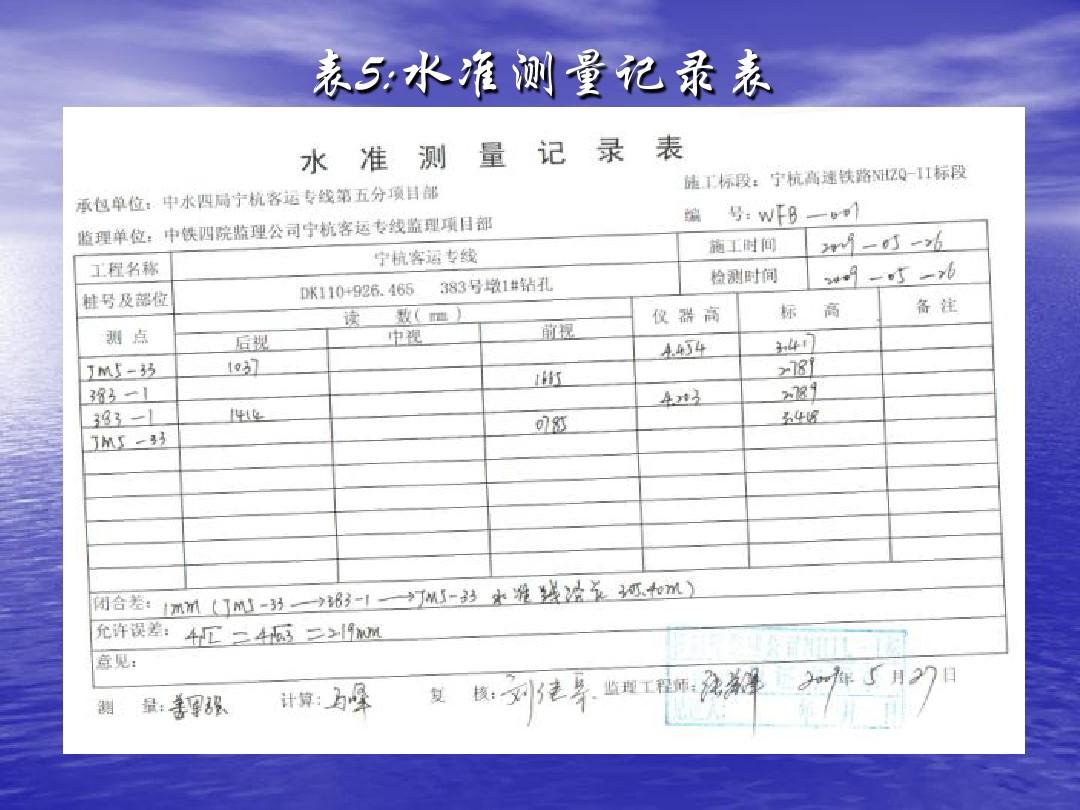 表5:水准测量记录表
水准测量记录表
承包单位：中水四局宁杭客运专线第五分项目部
施工标段：宁杭高速铁路NHZQ-II标段
监理单位：中铁四院监理公司宁杭客运专线监理项目部
编 号：WFB—001
工程名称 宁杭客运专线 施工时间 2009—05—26
桩号及部位 DK110+926.465 383号墩1#钻孔 检测时间 2009—05—26
测 点 读 数( mm ) 仪 器 高 标 高 备 注
后视 中视 前视
JM5-33 1037 4.454 3.417
383-1 1665 2.789
383-1 1414 4.203 2.789
JM5-33 0785 3.418
闭合差：1mm (JM5-33→383-1→JM5-33 水准 305.40m)
允许误差：4√L = 4√0.3 = 2.19mm
意见：
测 量： 计算：马峰 复 核： 监理工程师： 2009年 5 月 27 日